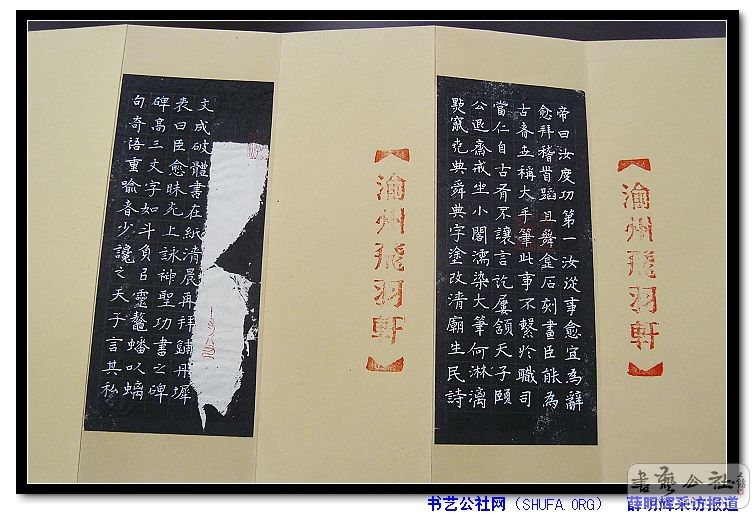 【渝州飛羽軒】
帝曰汝度功第一汝從事愈宜為辭
愈拜稽首蹈且舞金石刻畫臣能為
古者世稱大手筆此事不繫於職司
當仁自古有不讓言訖屢頷天子頤
公退齋戒坐小閤濡染大筆何淋漓
點竄堯典舜典字塗改清廟生民詩
【渝州飛羽軒】
文成破體書在紙清晨再拜鋪丹墀
表曰臣愈昧死上詠神聖功書之碑
碑高三丈字如斗負以靈鼇蟠以螭
句奇語重喻者少讒之天子言其私
書藝公社
书艺公社网（SHUFA.ORG） 薛明辉采访报道